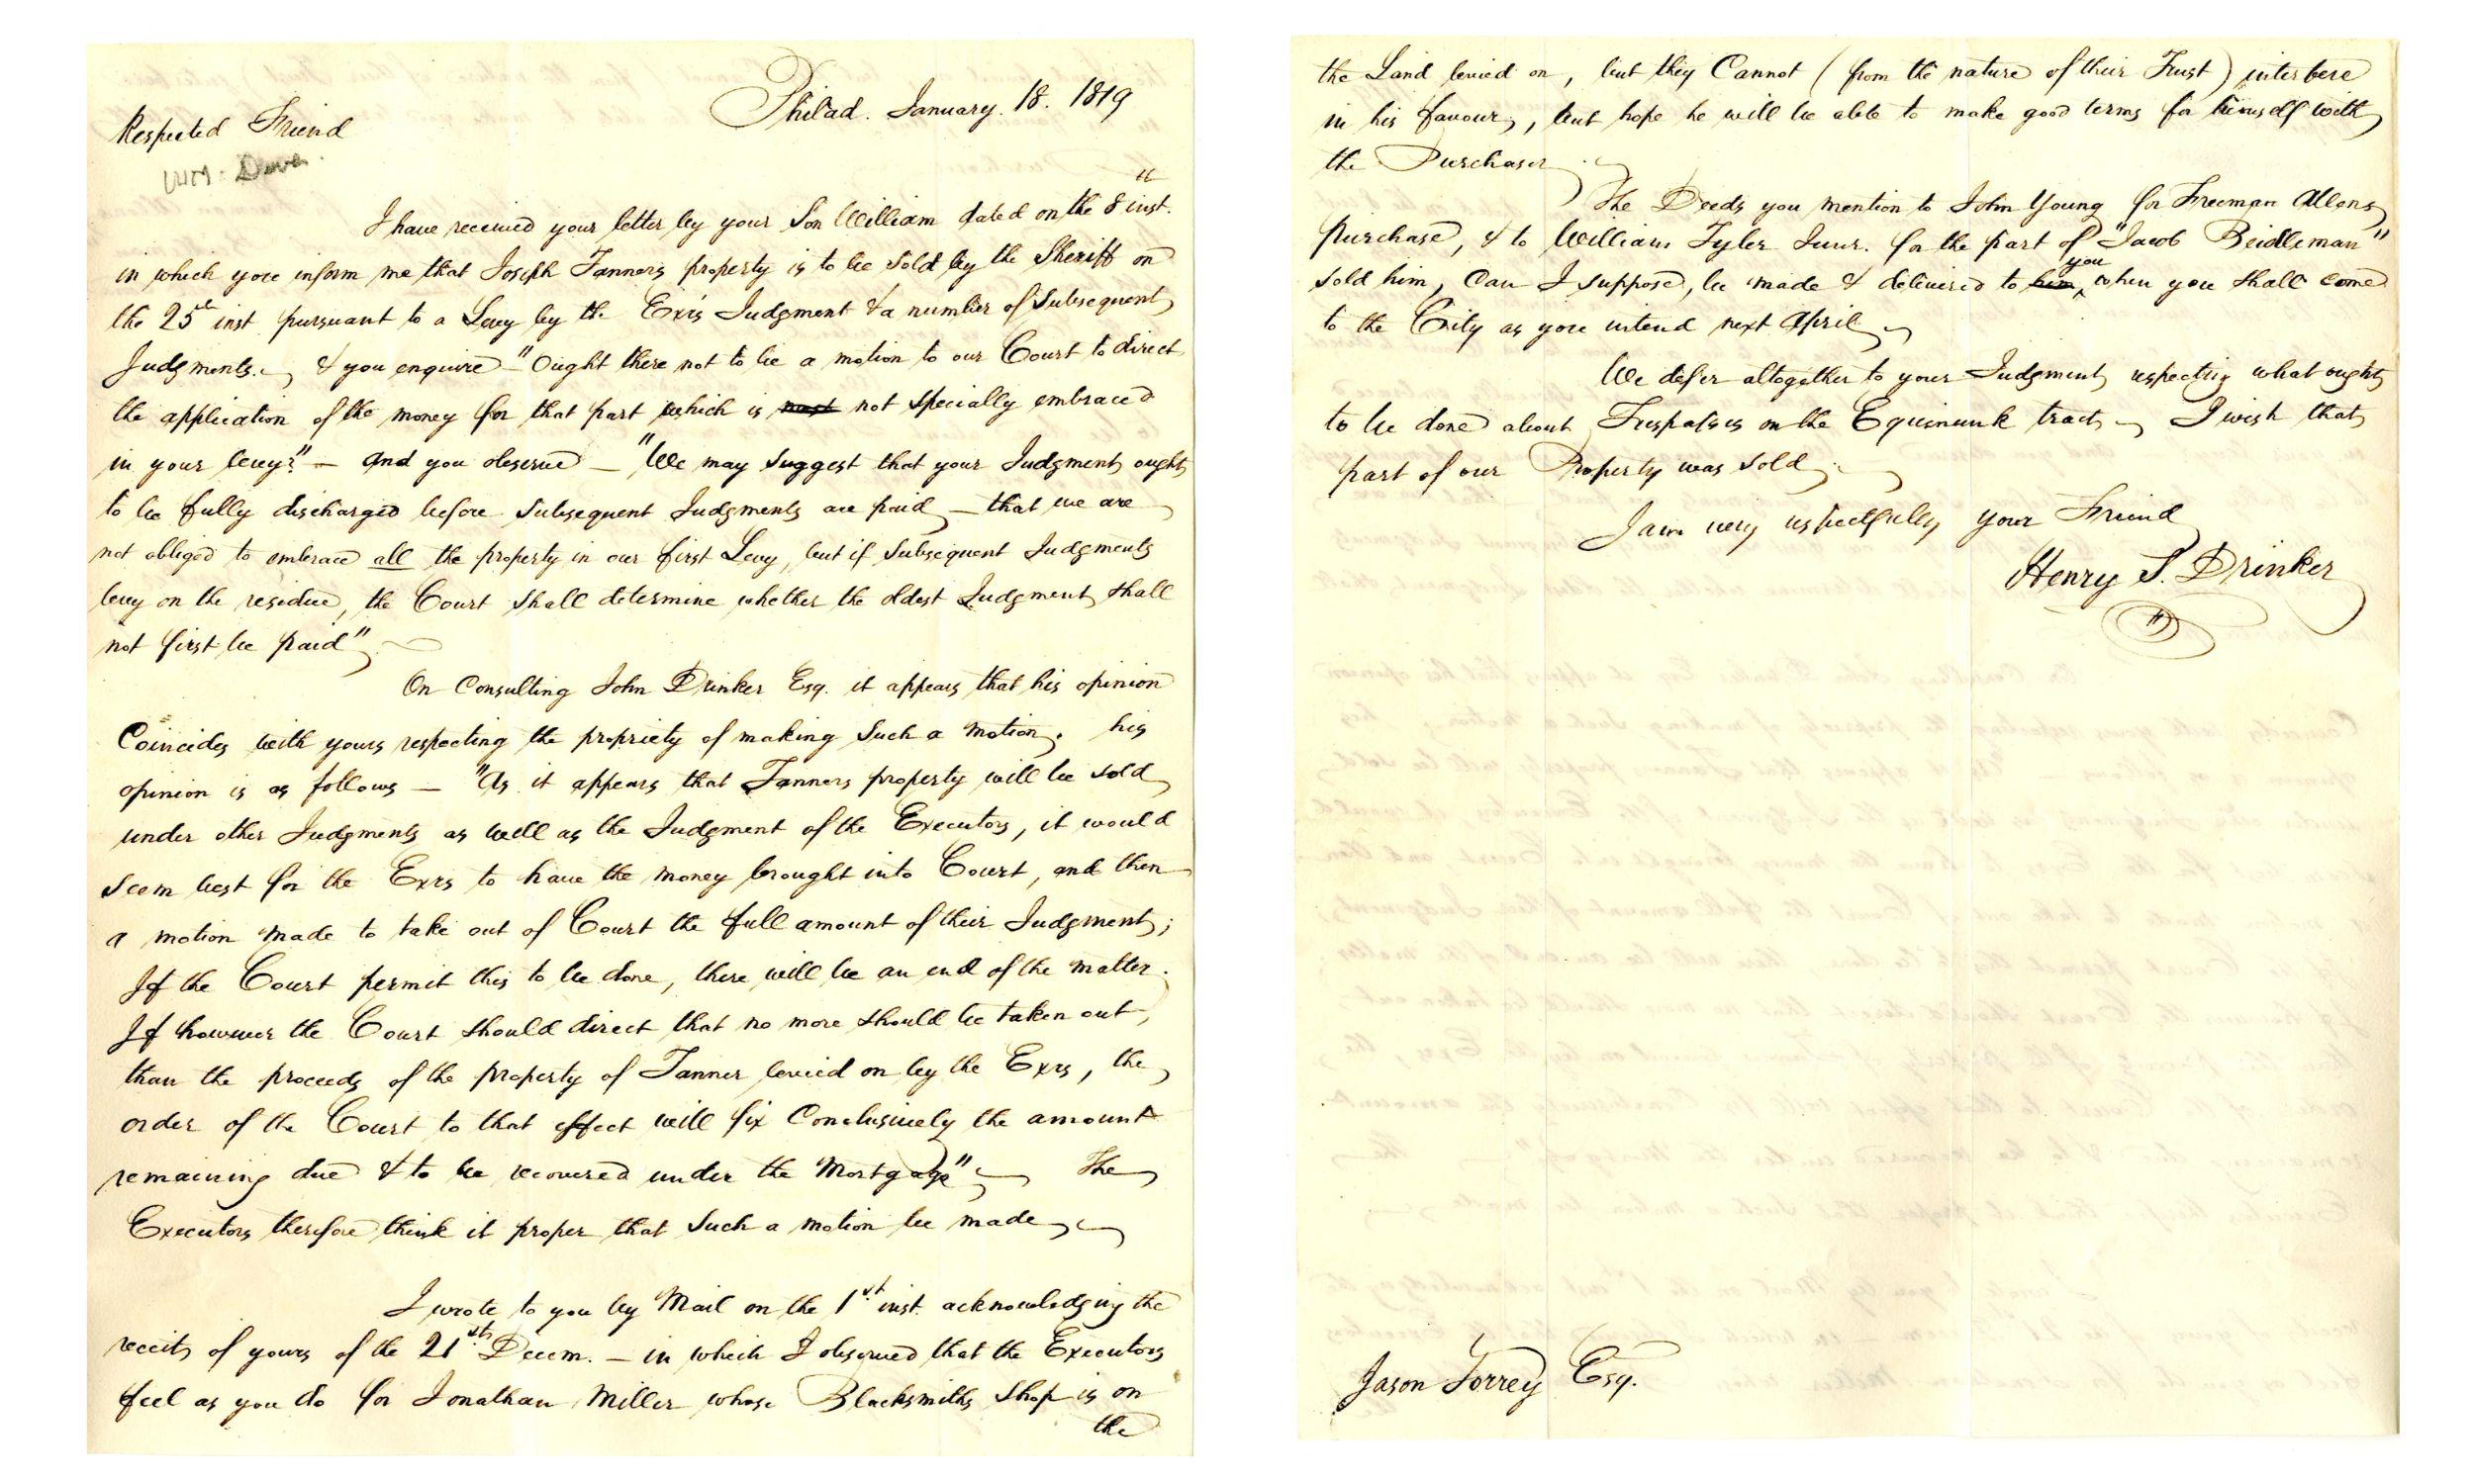 Philad. January. 18. 1819
Respected Friend
I have received your letter by your Son William dated on the 8th inst.
in which you inform me that Joseph Tanners property is to be Sold by the Sheriff on
the 25th inst pursuant to a Levy by the Exrs Judgment & a number of Subsequent
Judgments. & you enquire - "Ought there not to be a motion to our Court to direct
the application of the money for that part which is not specially embraced
in your levy?" - And you observe - "We may suggest that your Judgment ought
to be fully discharged before Subsequent Judgments are paid - that we are
not obliged to embrace all the property in our first Levy, but if Subsequent Judgments
levy on the residue, the Court Shall determine whether the oldest Judgment shall
not first be paid"
On Consulting John Drinker Esq. it appears that his opinion
Coincides with yours respecting the propriety of making Such a motion. his
opinion is as follows - "As it appears that Tanners property will be sold
under other Judgments as well as the Judgment of the Executors, it would
Seem best for the Exrs to have the money brought into Court, and then
a motion made to take out of Court the full amount of their Judgment;
If the Court permit this to be done, there will be an end of the matter.
If however the Court should direct that no more should be taken out,
than the proceeds of the property of Tanner levied on by the Exrs, the
order of the Court to that effect will fix Conclusively the amount
remaining due & to be recovered under the Mortgage" The
Executors therefore think it proper that Such a motion be made
I wrote to you by Mail on the 1st inst. acknowledging the
receit of yours of the 21st Decem. - in which I observed that the Executors
feel as you do for Jonathan Miller whose Blacksmiths Shop is on
the
the Land levied on, but they Cannot (from the nature of their Trust) interbere
in his favour, but hope he will be able to make good terms for himself with
the Purchaser.
The Deeds you mention to John Young for Freeman Allens
purchase, & to William Tyler Junr. for the part of "Jacob Beidleman"
sold him, Can I suppose, be made & delivered to him you when you shall come
to the City as you intend next April
We defer altogether to your Judgment respecting what ought
to be done about Trespasses on the Equinunk tract - I wish that
part of our Property was sold.
I am very respectfully your Friend
Henry S. Drinker
Jason Torrey Esq.